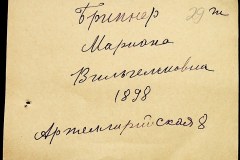 Бриннер 29 т
Мариана
Вильгельмовна
1898
Артиллерийская 8